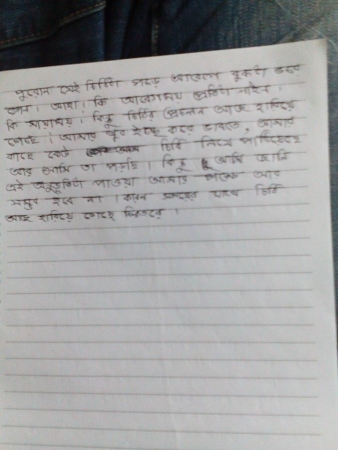 পুরোনো সেই চিঠিটা পড়ে আবেগে বুকটা ভরে
গেল। আহা। কি আবেগময় প্রতিটা লাইন।
কি মায়াময়। কিন্তু চিঠির প্রচলন আজ হারিয়ে
গেছে। আমার খুব ইচ্ছে করে ভাবতে, আমার
কাছে কেউ চিঠি লিখে পাঠিয়েছে
আর আমি তা পড়ছি। কিন্তু আমি জানি
এই অনুভূতিটা পাওয়া আমার পক্ষে আর
সম্ভব হবে না। কারন সময়ের সাথে চিঠি
আজ হারিয়ে গেছে চিরতরে।